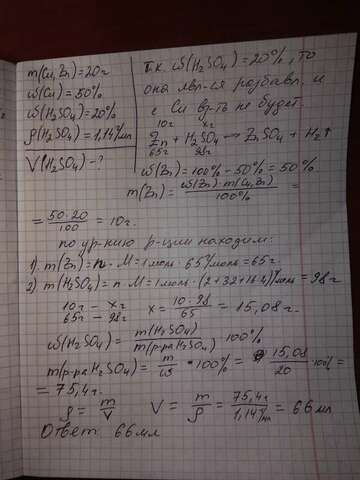 m(Cu,Zn)=20г
ω(Cu)=50%
ω(H₂SO₄)=20%
ρ(H₂SO₄)=1,14г/мл
V(H₂SO₄)-?
Т.к. ω(H₂SO₄)=20%, то
она явл-ся разбавл. и
с Cu вз-ть не будет.
10г xг
Zn + H₂SO₄ → ZnSO₄ + H₂↑
65г 98г
ω(Zn)=100%-50%=50%
m(Zn)=ω(Zn)·m(Cu,Zn)/100%=
=50·20/100=10г.
по ур-нию р-ции находим:
1). m(Zn)=n·M=1моль·65г/моль=65г.
2) m(H₂SO₄)=n·M=1моль·(2+32+16·4)г/моль=98г
10г - xг
65г - 98г
x=10·98/65=15,08г.
ω(H₂SO₄)=m(H₂SO₄)/m(р-ра H₂SO₄) 100%
m(р-ра H₂SO₄)=m/ω·100%=15,08/20·100%=
=75,4г.
ρ=m/V V=m/ρ=75,4г/1,14г/мл=66мл
Ответ: 66мл